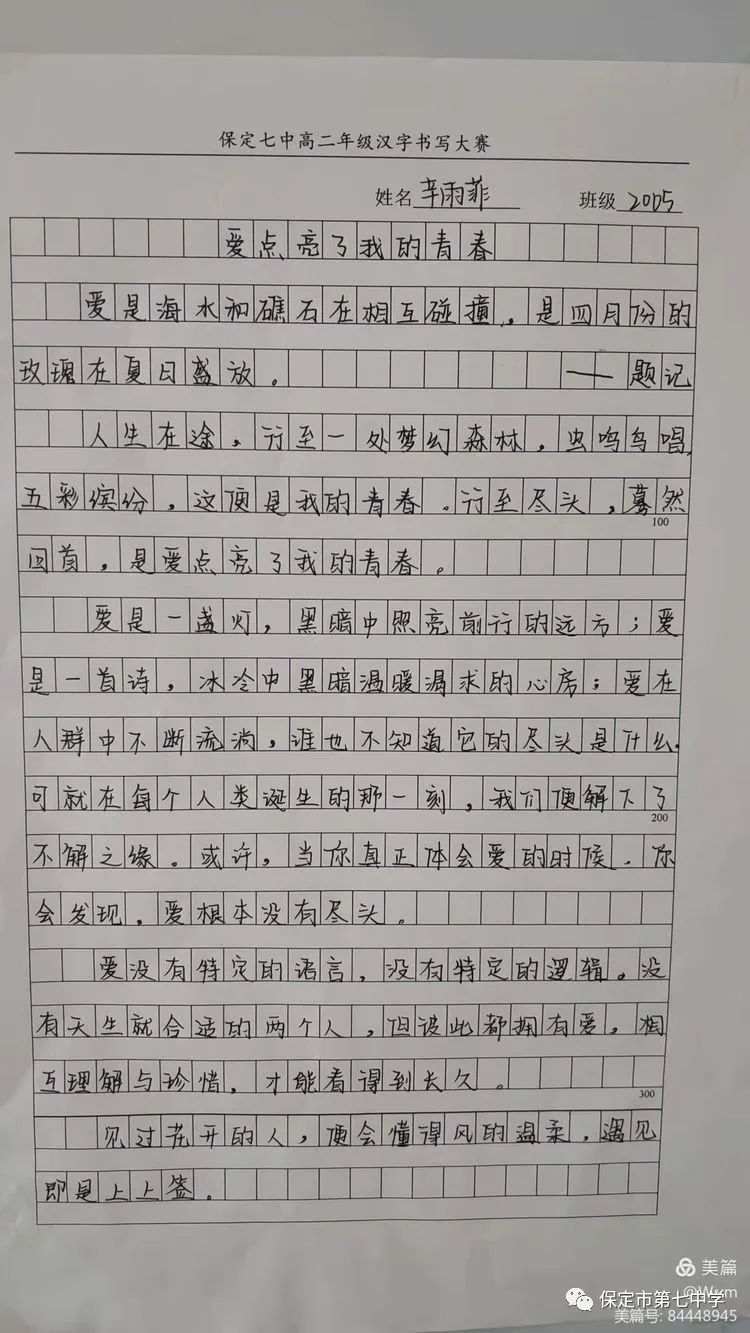 保定七中高二年级汉字书写大赛
姓名 辛雨菲 班级 2005
爱点亮了我的青春
爱是海水和礁石在相互碰撞，是四月份的
玫瑰在夏日盛放。 ——题记
人生在途，行至一处梦幻森林，虫鸣鸟唱，
五彩缤纷，这便是我的青春。行至尽头，蓦然
100
回首，是爱点亮了我的青春。
爱是一盏灯，黑暗中照亮前行的远方；爱
是一首诗，冰冷中黑暗温暖渴求的心房；爱在
人群中不断流淌，谁也不知道它的尽头是什么，
可就在每个人类诞生的那一刻，我们便解下了
200
不解之缘。或许，当你真正体会爱的时候，你
会发现，爱根本没有尽头。
爱没有特定的语言，没有特定的逻辑。没
有天生就合适的两个人，但彼此都拥有爱，相
互理解与珍惜，才能看得到长久。
300
见过花开的人，便会懂得风的温柔，遇见
即是上上签。
美篇
@Wxm
保定市第七中学
美篇号: 84448945